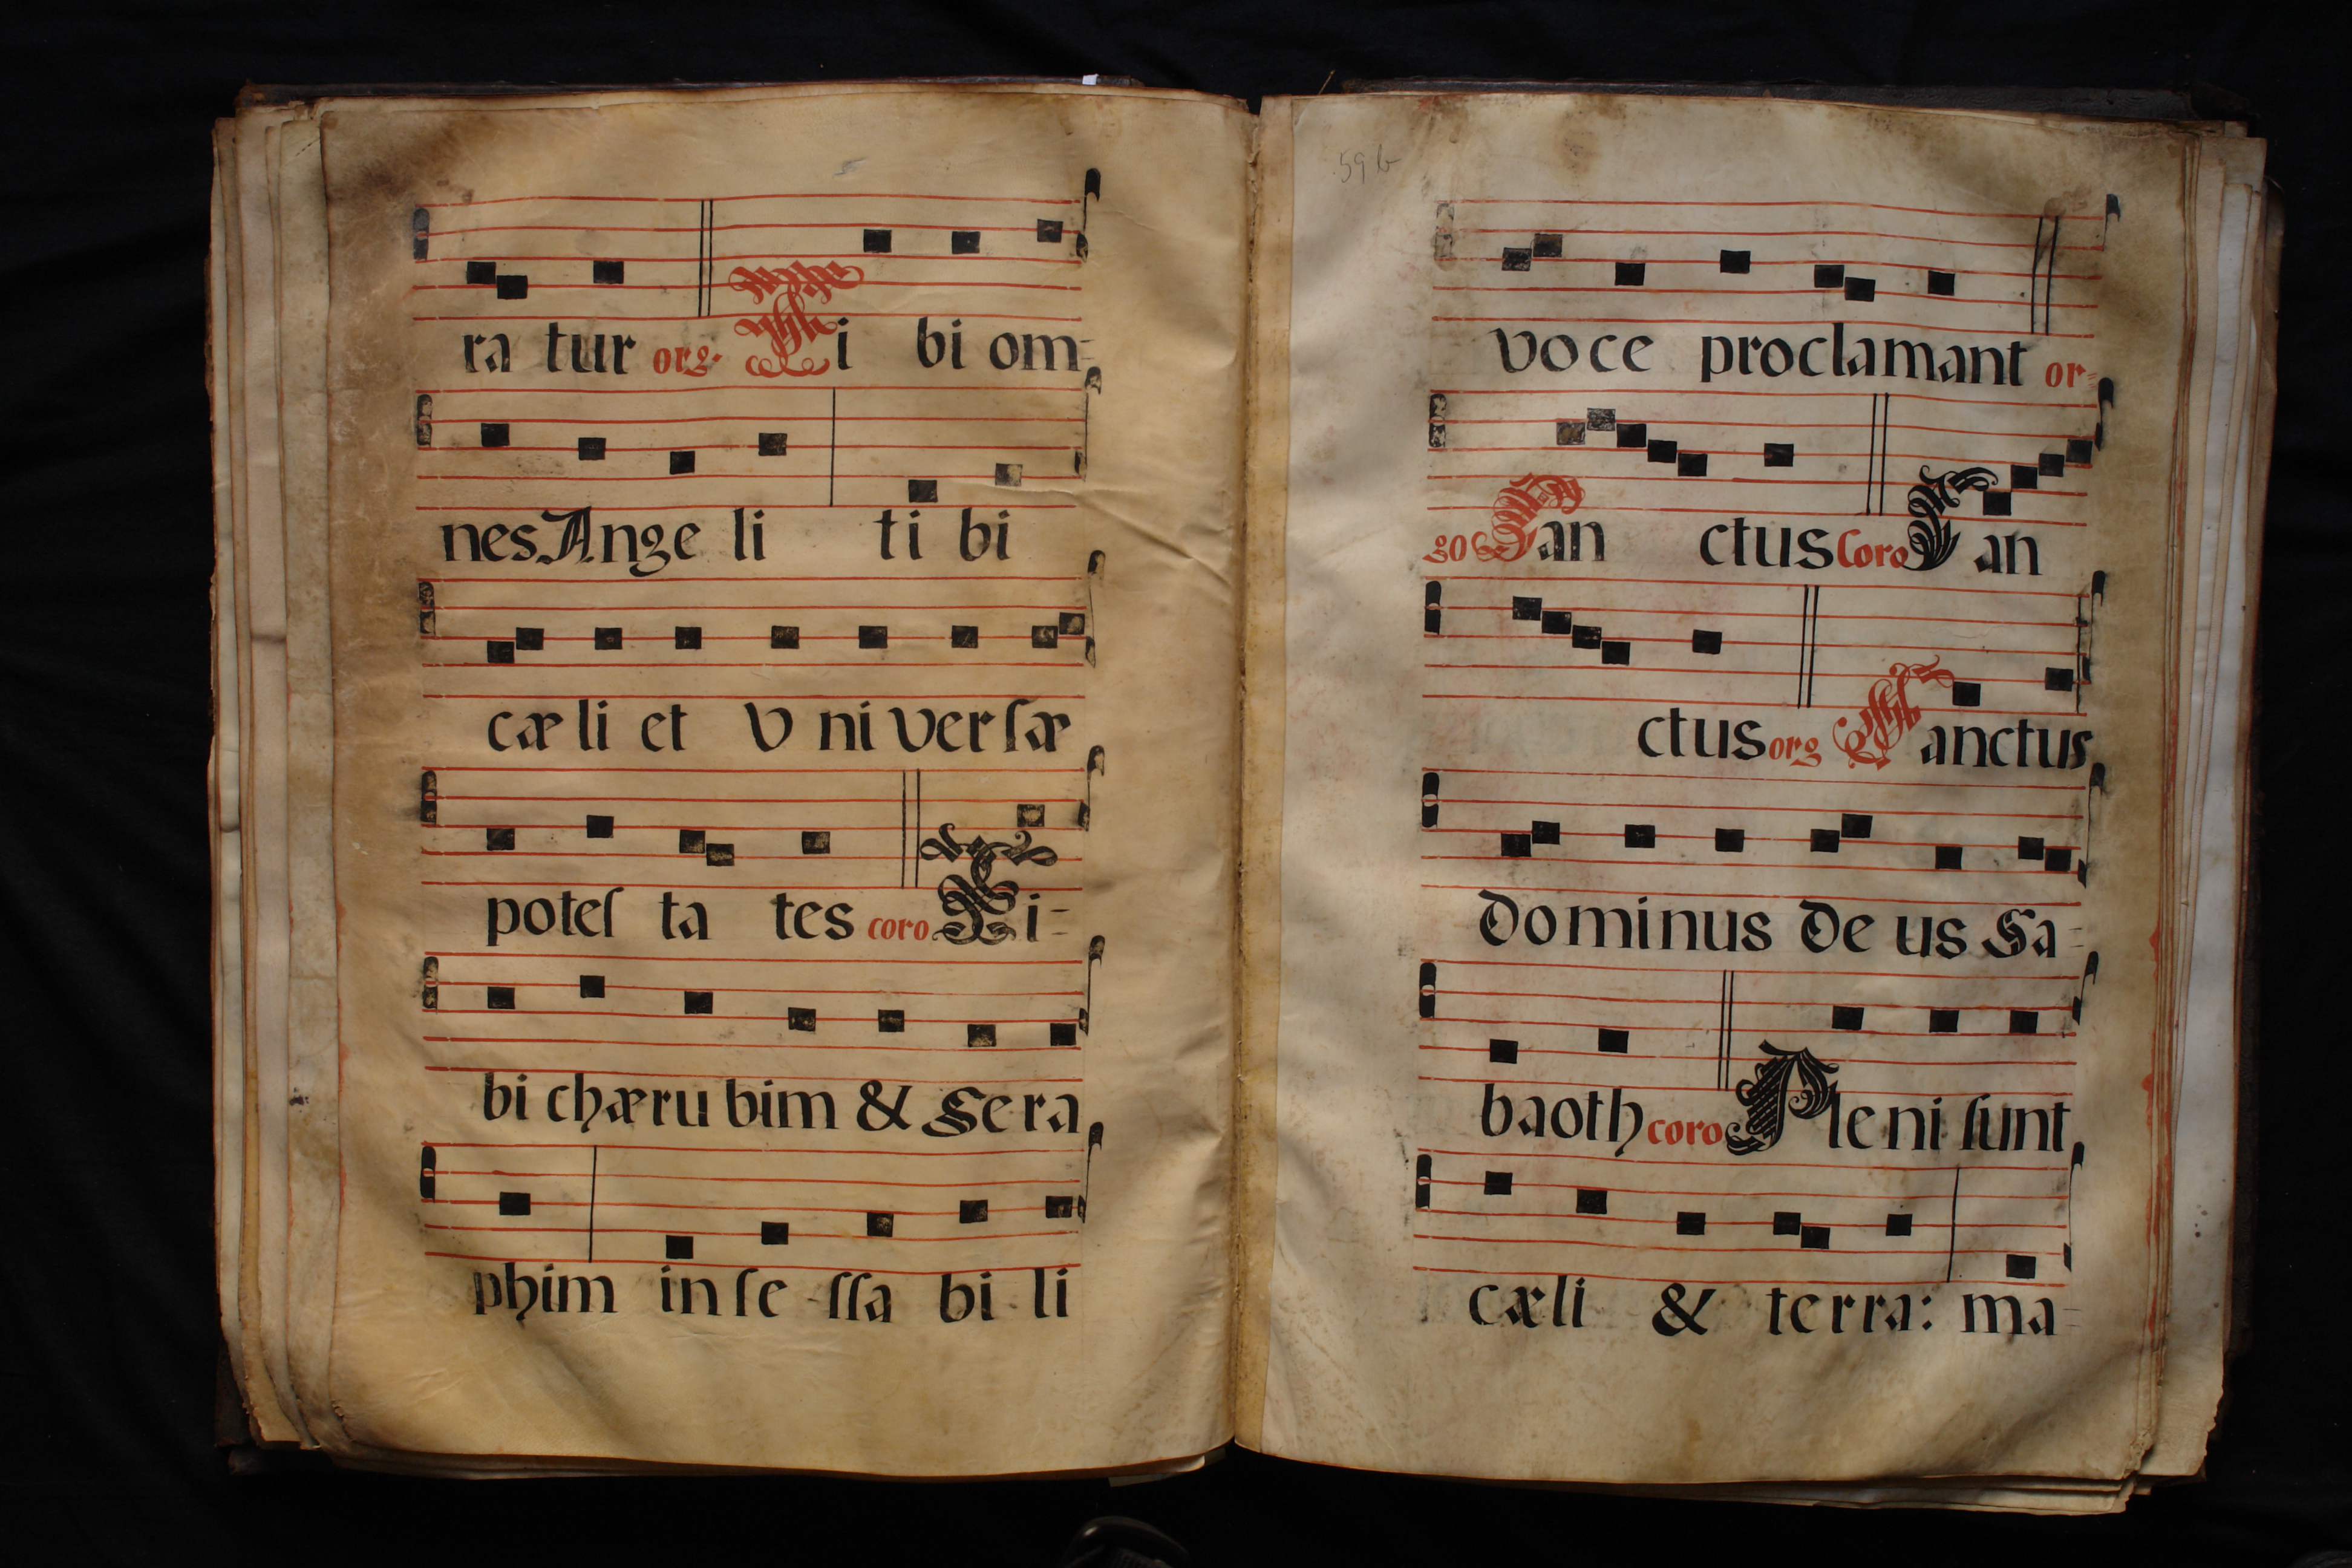 ra tur org. Ti bi om=
nes Ange li ti bi
cæ li et V ni verſæ
poteſ ta tes coro Ti=
bi chærubim & Sera
phim in ſe ſſa bi li
59b
voce proclamant or=
go San ctus Coro San
ctus org Sanctus
Dominus De us Sa=
baoth coro Pleni ſunt
cæli & terra: ma=